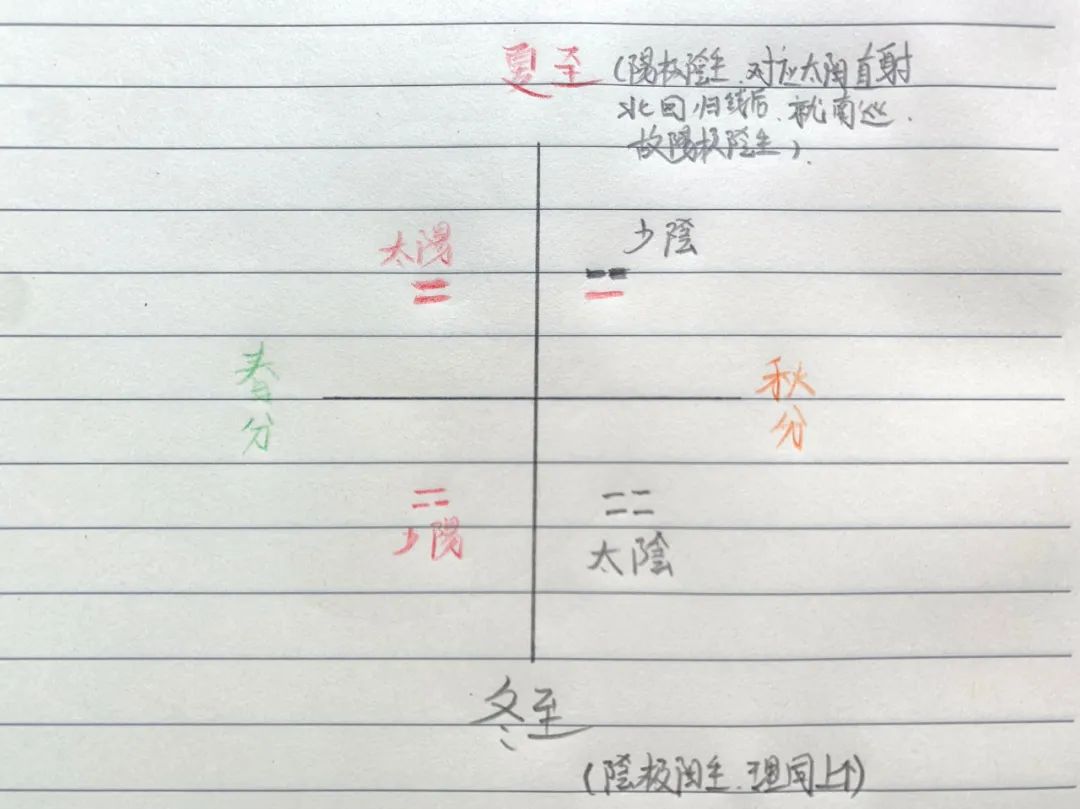 夏至(陽极陰生.对应太阳直射
北回归线后.就南巡.
故陽极陰生).
太陽
少陰
春
分
秋
分
少陽
太陰
冬至
(陰极阳生.理同上↑)